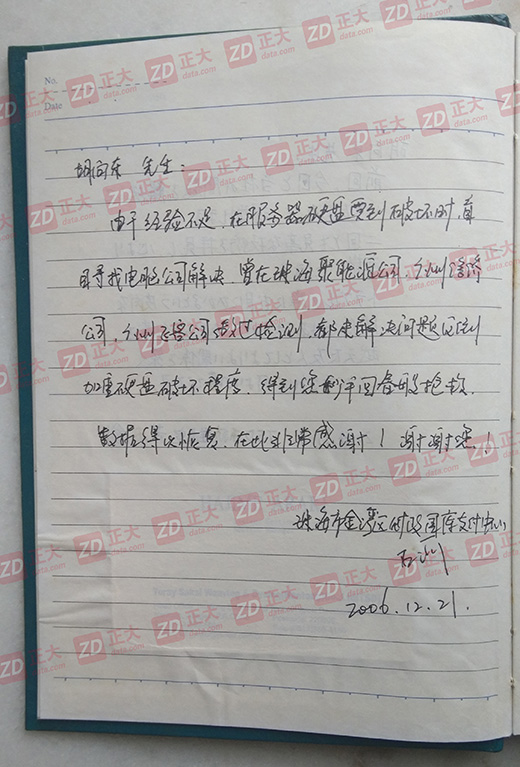 No.
Date
胡向东 先生：
由于经验不足，在服务器硬盘受到破坏时，盲
目寻找电脑公司解决，曾在珠海聚能源公司、广州
公司、广州 公司 过检测，都未解决问题反到
加重硬盘破坏程度，得到您 回春的抢救，
数据得以恢复，在此非常感谢！谢谢您！
珠海市金湾区财政国库支付中心
2006.12.21.
ZD 正大
data.com